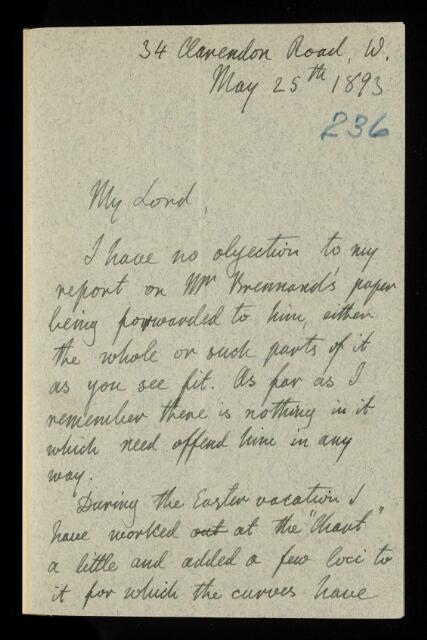 34 Clarendon Road, W.
May 25th 1893
236
My Lord,
I have no objection to my
report on Mr Brennand's paper
being forwarded to him, either
the whole or such parts of it
as you see fit. As far as I
remember there is nothing in it
which need offend him in any
way.
During the Easter vacation I
have worked out at the "Chart"
a little and added a few loci to
it for which the curves have